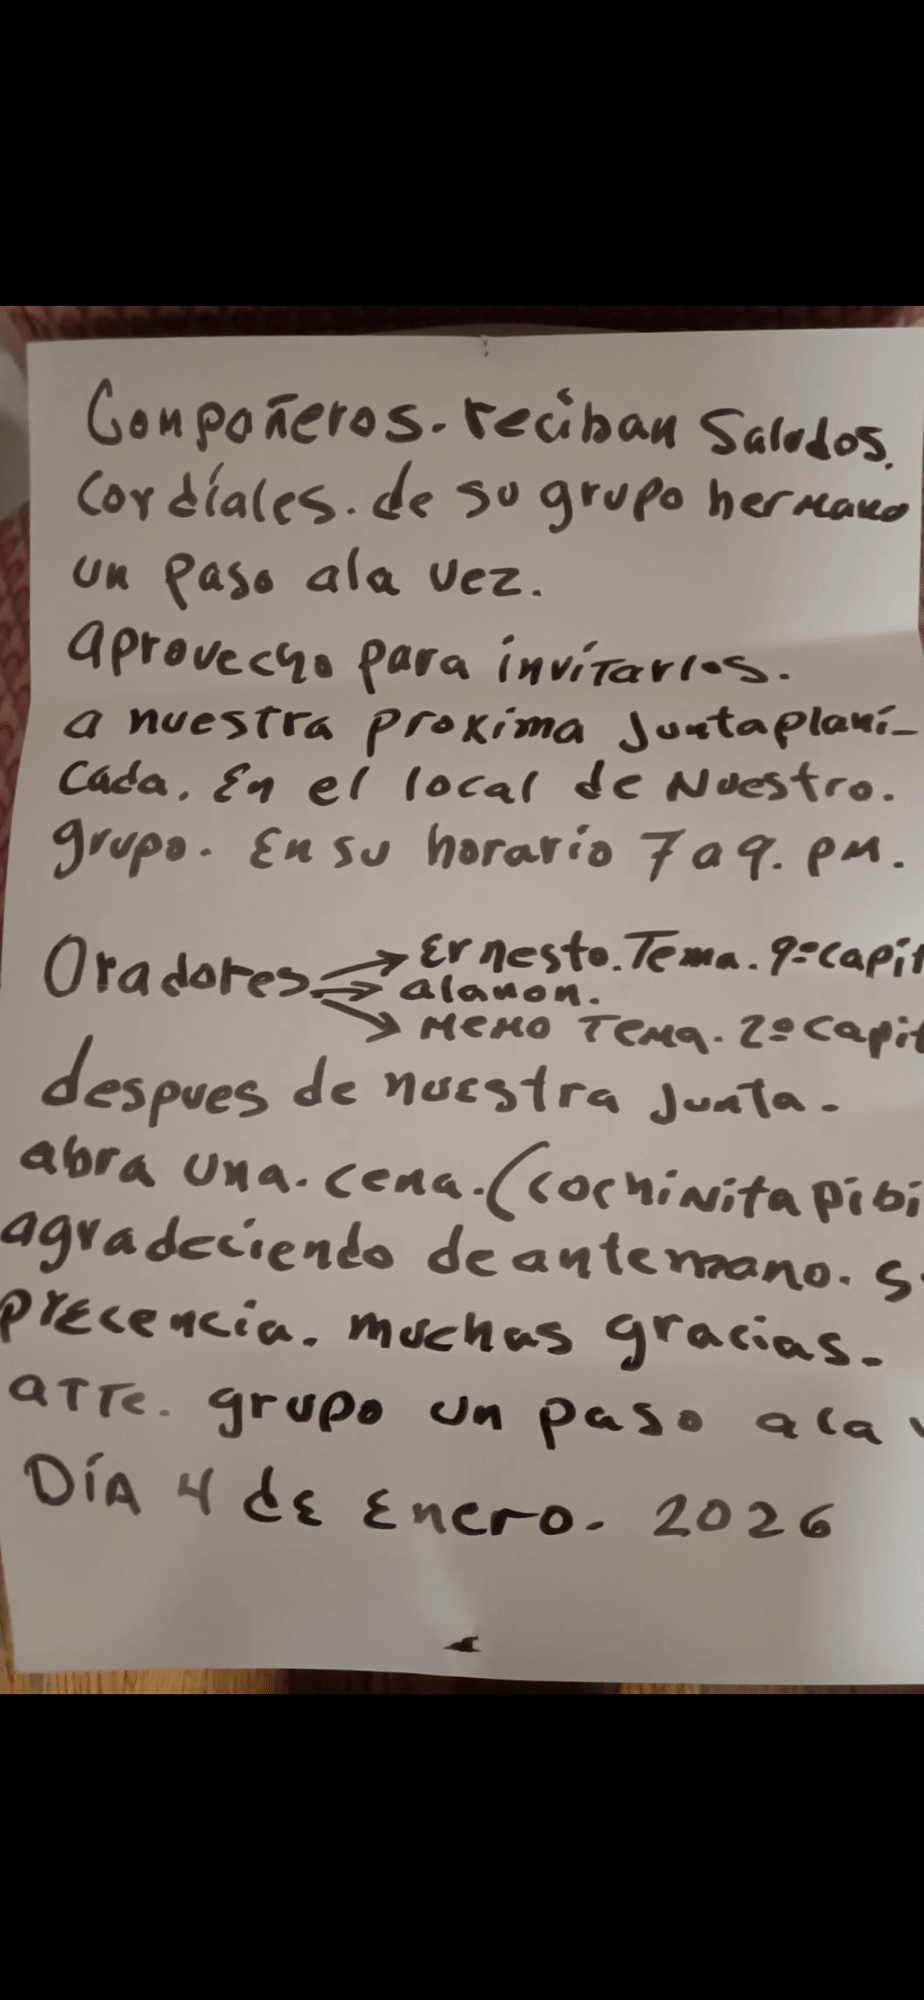 Compañeros. reciban Saludos.
Cordíales. de su grupo hermano
un paso ala vez.
aprovecho para invítarlos.
a nuestra proxima Junta planí-
cada. En el local de Nuestro.
grupo. En su horario 7 a 9. PM.
Oradores → Ernesto. Tema. 9º capit
→ alanon.
→ Memo Tema. 2º capit
despues de nuestra Junta.
abra una. cena. (cochinita pibi
agradeciendo de antemano. s
precencia. muchas gracias.
atte. grupo un paso ala v
Día 4 de Enero. 2026